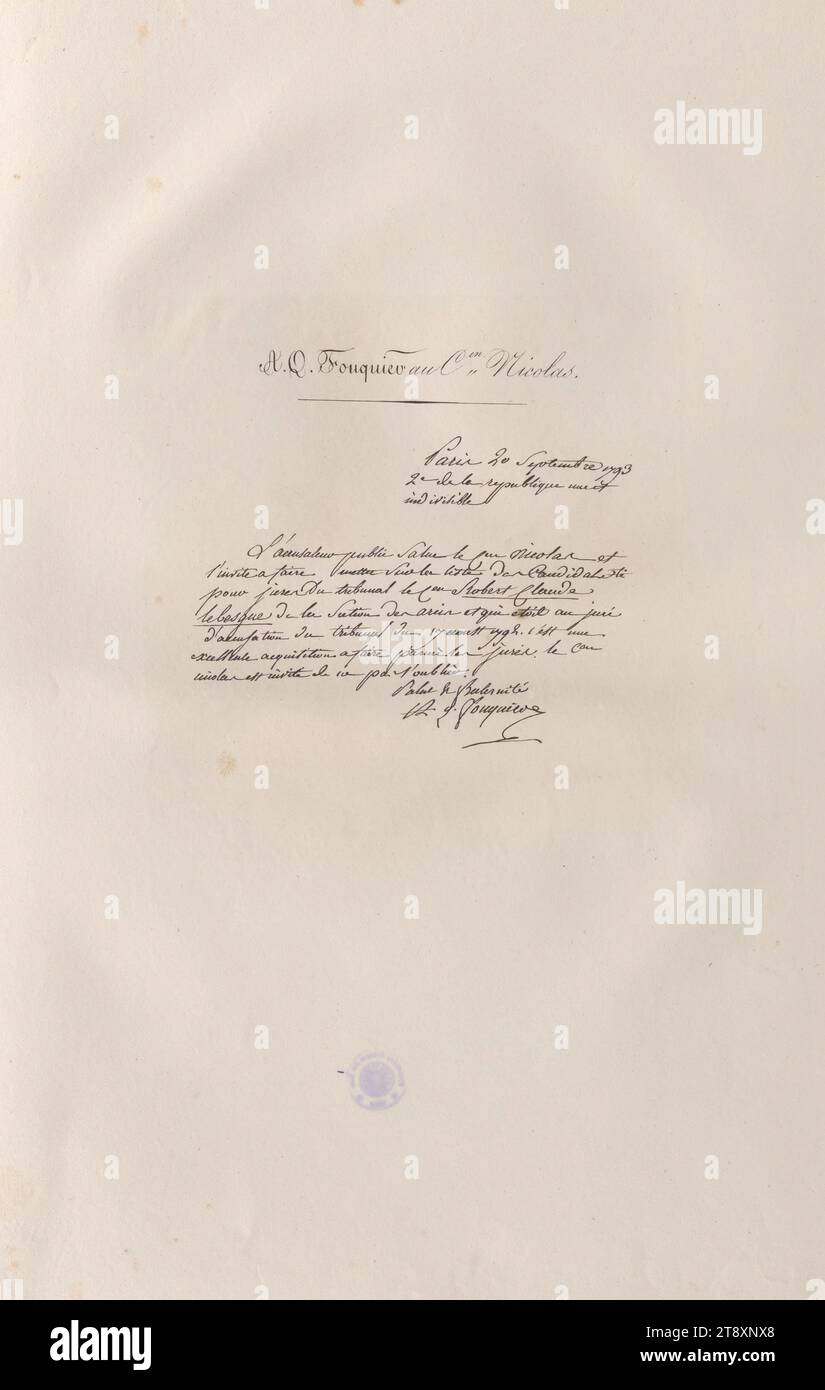 A. Q. Fouquier au C.en Nicolas.
Paris 20 Septembre 1793
2e de la republique une et
indivisible
L'accusateur public salue le cen Nicolas et
l'invite a faire mettre sur la liste des Candidats
pour jurés Du tribunal le Cen Robert Claude
lebesque de la section des arcis et qui etoit au juré
d'accusation du tribunal du 17 aoust 1792. c'est une
excellente acquisition a faire parmi les jurés. le cen
nicolas est invité de ne pas l'oublier.
Salut & fraternité
A. q. fouquier
alamy
alamy
alamy
alamy
Image ID: 2T8XNX8
www.alamy.com